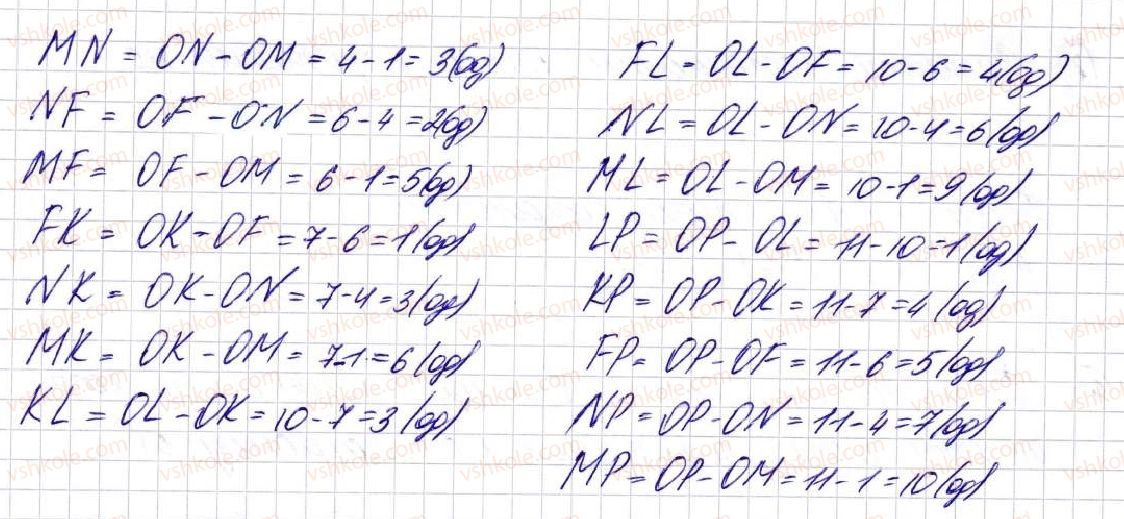 MN = ON - OM = 4 - 1 = 3(од)
NF = OF - ON = 6 - 4 = 2(од)
MF = OF - OM = 6 - 1 = 5(од)
FK = OK - OF = 7 - 6 = 1(од)
NK = OK - ON = 7 - 4 = 3(од)
MK = OK - OM = 7 - 1 = 6(од)
KL = OL - OK = 10 - 7 = 3(од)
FL = OL - OF = 10 - 6 = 4(од)
NL = OL - ON = 10 - 4 = 6(од)
ML = OL - OM = 10 - 1 = 9(од)
LP = OP - OL = 11 - 10 = 1(од)
KP = OP - OK = 11 - 7 = 4(од)
FP = OP - OF = 11 - 6 = 5(од)
NP = OP - ON = 11 - 4 = 7(од)
MP = OP - OM = 11 - 1 = 10(од)
vshkole.com